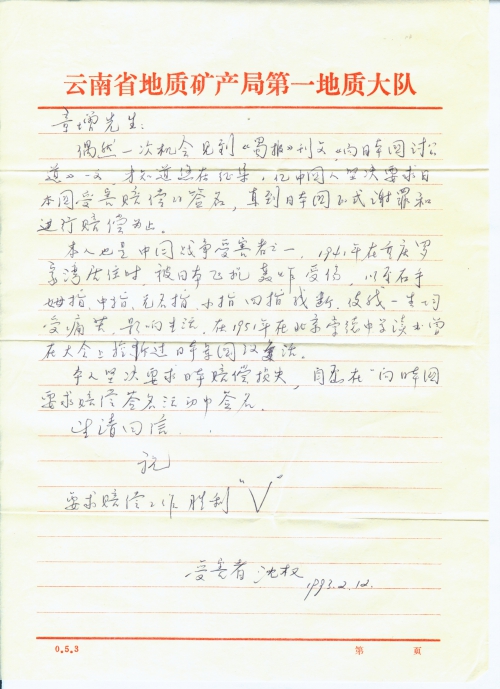 云南省地质矿产局第一地质大队
童增先生:
偶然一次机会见到《蜀报》刊文《向日本国讨公
道》一文,才知道您在征集一亿中国人坚决要求日
本国受害赔偿的签名,直到日本国正式谢罪和
进行赔偿为止。
本人也是中国战争受害者之一,1941年在重庆罗
家湾居住时,被日本飞机轰炸受伤,以至右手
拇指、中指、无名指、小指四指残断,使我一生
受痛苦,影响生活。在1951年在北京读书曾
在大会上指斥过日本军国
本人坚决要求日本赔偿损失,自愿在"向日本国
要求赔偿签名活动中签名。
请回信。
祝
要求赔偿工作胜利"V"
受害者 沈权
1993.2.12.
0.5.3 第 页